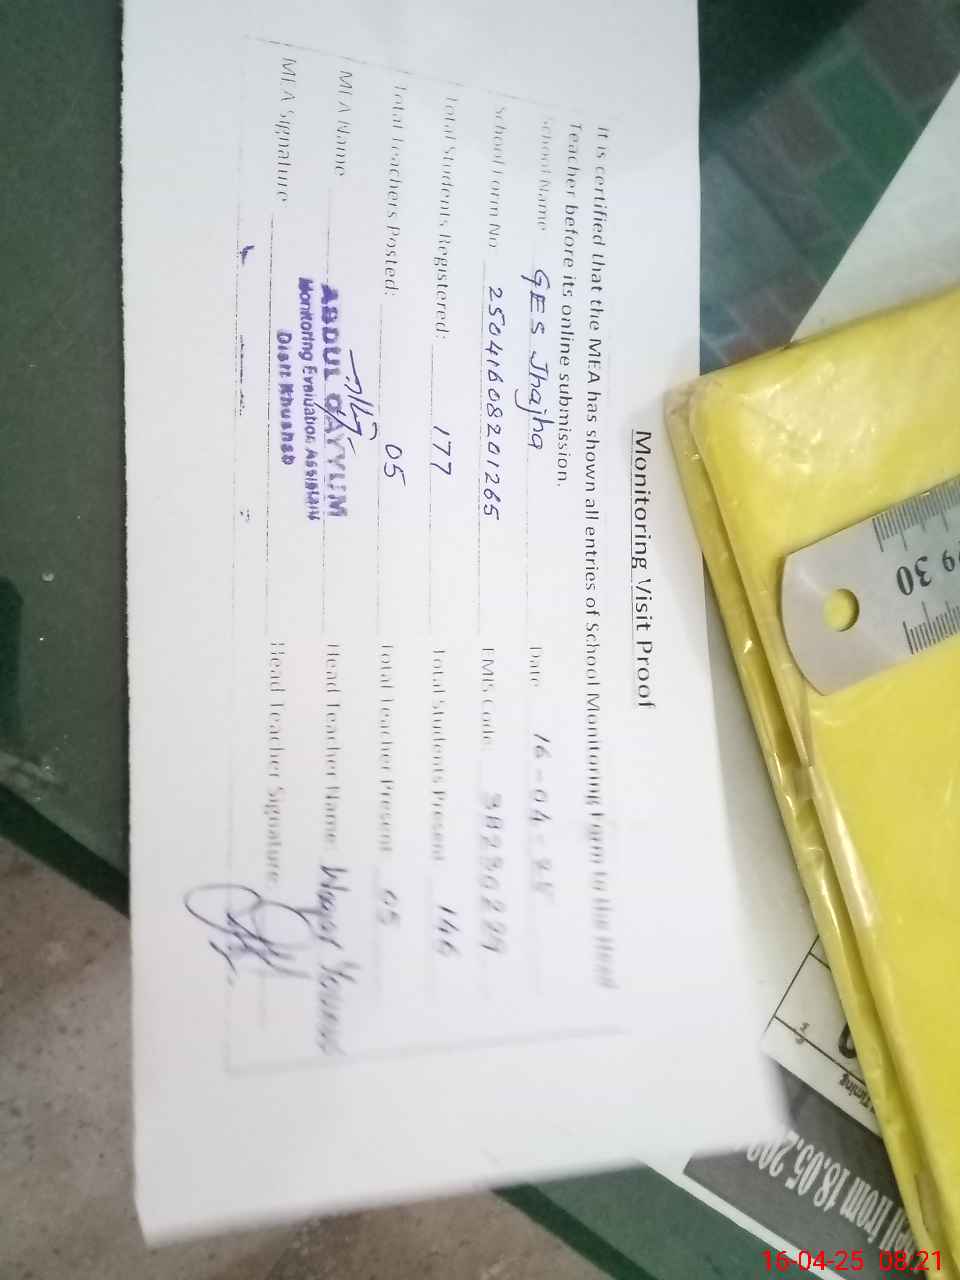 Monitoring Visit Proof
It is certified that the MEA has shown all entries of School Monitoring Form to the Head
Teacher before its online submission.
School Name GES Jhajha Date 16-04-25
School Form No 25041608201265 EMIS Code:
Total Students Registered: 177 Total Students Present 146
Total Teachers Posted: 05 Total Teacher Present 05
MEA Name ABDUL QAYYUM Head Teacher Name: Waqar
Monitoring Evaluation Assistant
Distt Khushab
MEA Signature Head Teacher Signature:
29 30
Timing
from 18.05.20
16-04-25 08:21